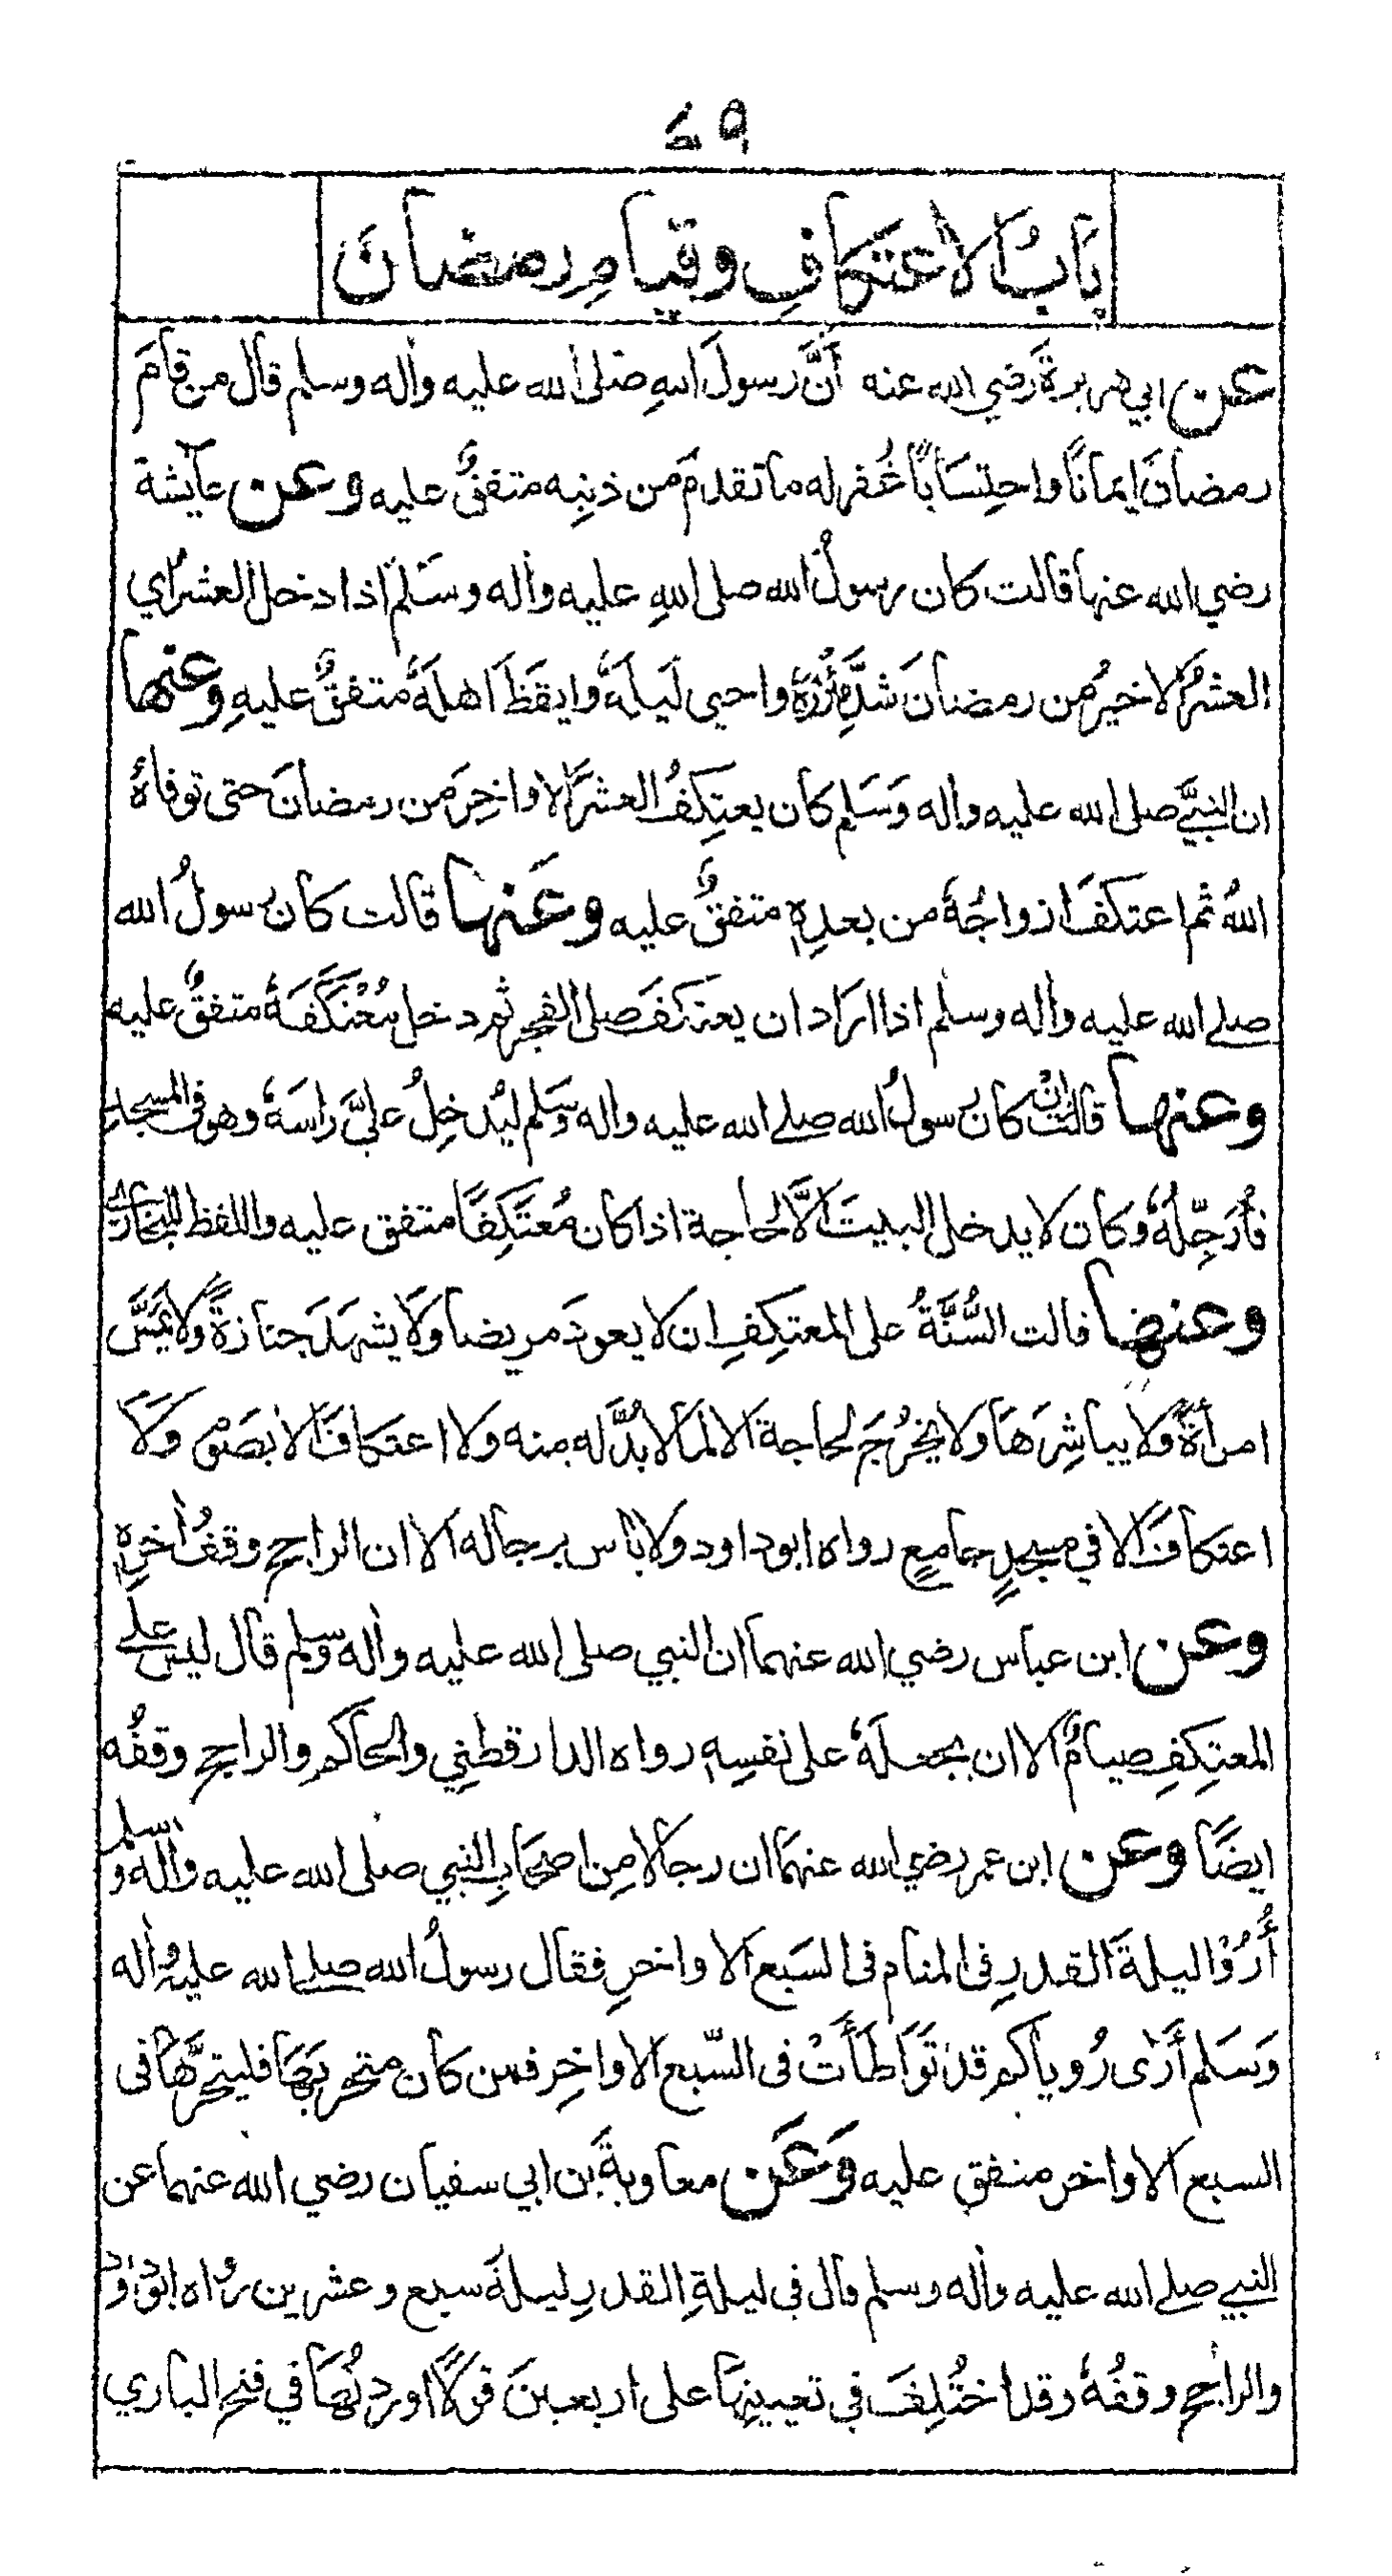 ٩٤
بَابُ الاعتِكافِ وقيامِ رمضانَ
عن ابي هريرةَ رضي الله عنه أنَّ رسولَ اللهِ صَلى الله عليه واٰله وسلم قال من قامَ
رمضانَ ايمانًا واحتِسَابًا غُفر له ما تقدمَ من ذنبِه متفقٌ عليه وعن عايشة
رضي الله عنها قالت كان رسولُ الله صلى اللهِ عليه واٰله وسَلمَ اذا دخل العشرُ اي
العشرُ الاخيرُ من رمضانَ شدَّ مِئزرَهٗ واحيى لَيلَهٗ وايقظَ اهلَهٗ متفقٌ عليهِ وعنها
ان النبيَّ صلى الله عليه واٰله وَسَلم كان يعتِكفُ العشرَ الاواخِرَ من رمضانَ حتى توفاهُ
اللهُ ثم اعتكفَ ازواجُهٗ من بعدِهٖ متفقٌ عليه وعَنها قالت كان رسولُ الله
صلے الله عليه واٰله وسلم اذا ارَاد ان يعتكفَ صلى الفجر ثم دخل مُعْتَكَفَهٗ متفقٌ عليه
وعنها قالت اِنْ كان رسولُ الله صلے الله عليه واٰله وَسَلم ليُدخِلُ عليَّ راسَهٗ وهو في المسجدِ
فأُرَجِّلُهٗ وكان لا يدخل البيتَ الَّا لحاجة اذا كان مُعتَكِفًا متفق عليه واللفظ للبخاري
وعنها قالت السُّنَّةُ على المعتكِفِ ان لا يعودَ مريضا ولَا يشهدَ جنازةً ولا يَمَسَّ
امرأةً ولا يباشِرَهَا ولا يخرُجَ لحاجة الا لما لا بُدَّ له منه ولا اعتكافَ الا بصَومٍ ولَا
اعتكافَ الا في مسجدٍ جامعٍ رواه ابو داود ولا باس برجاله الا ان الراجح وقفُ اٰخرِهٖ
وعن ابن عباس رضي الله عنهما ان النبي صلى الله عليه واٰله وسلم قال ليس علے
المعتكِفِ صيامٌ الا ان يجعلَهٗ على نفسِهٖ رواه الدارقطنِي والحاكم والراجح وقفُه
ايضًا وعن ابن عمر رضي الله عنهمَا ان رجالا مِن اصحَابِ النبي صلى الله عليه واٰله وسلم
أُرُوْا ليلةَ القدرِ فى المنام فى السَبع الاواخرِ فقال رسولُ الله صلے الله عليه واٰله
وَسَلم أَرٰى رُوياكم قد تَوَاطَأَتْ فى السّبع الاواخِرِ فمن كان متحريَهَا فليتحرَّهَا فى
السبع الاواخر متفق عليه وَعَن معاويةَ بن ابي سفيان رضي الله عنهما عن
النبي صلے الله عليه واٰله وسلم قال فى ليلةِ القدرِ ليلةَ سبع وعشرين رواه ابو داود
والراجح وقفُهٗ وقد اختُلِفَ في تعيينِهَا على اربعينَ قولًا اوردتُهَا في فتح الباري